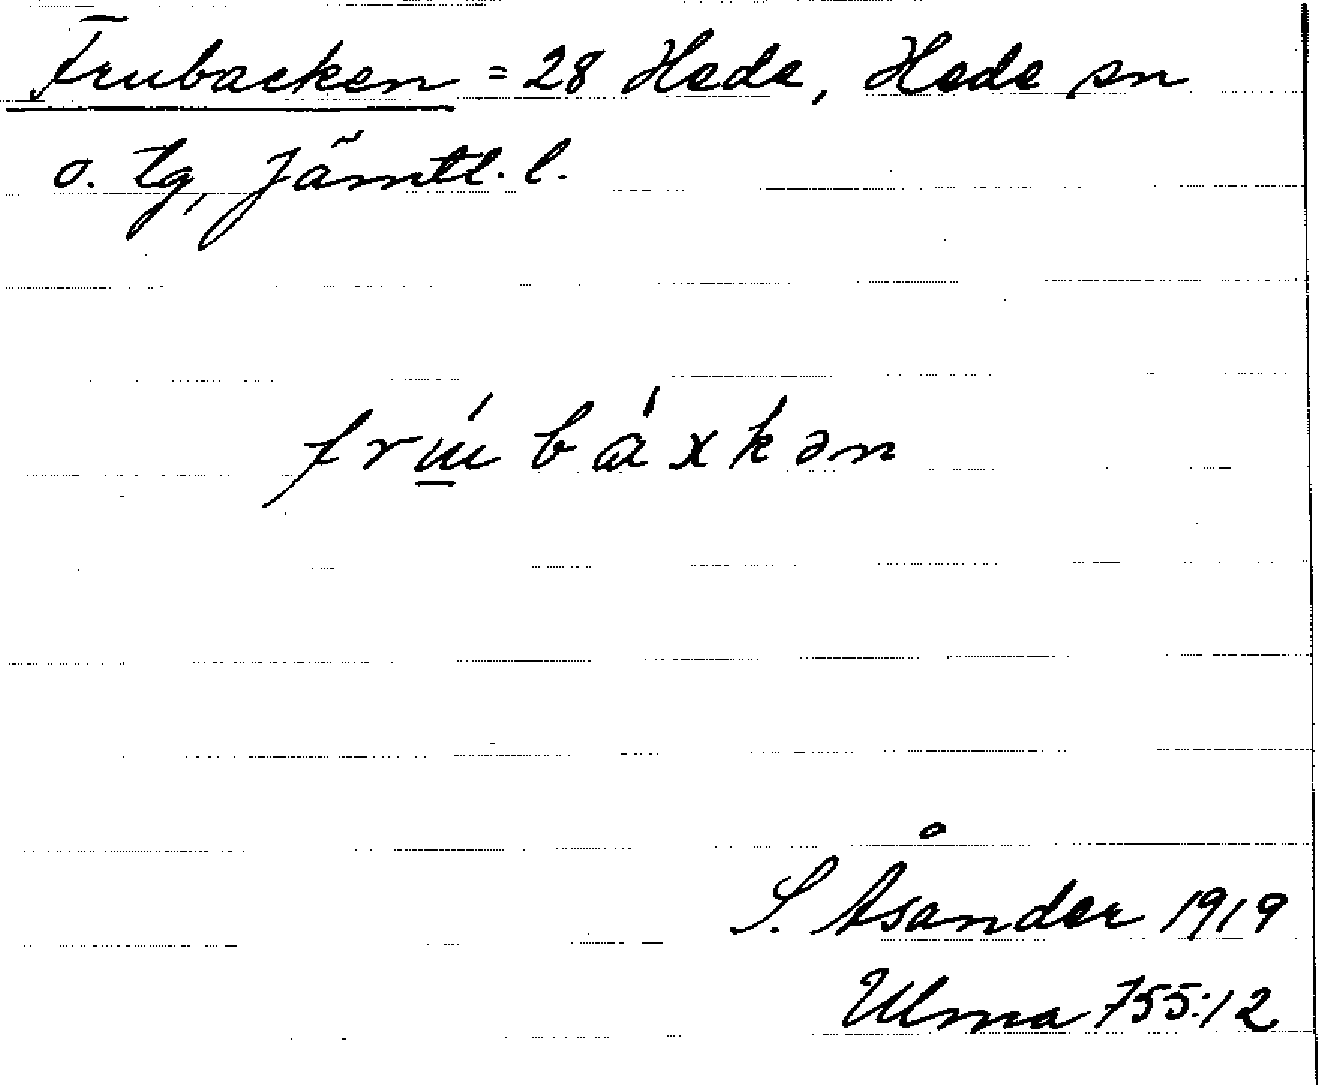 Frubacken = 28 Hede, Hede sn
o. tg, Jämtl. l.
frɯ̱́ bàxkən
S. Åsander 1919
Ulma 755:12